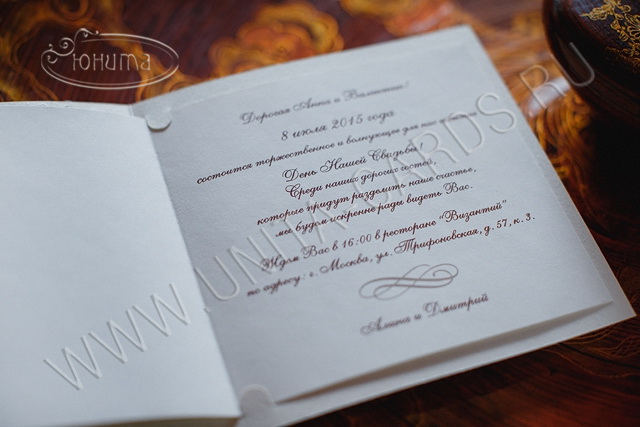 Юнита
Дорогая Анна и Валентин!
8 июля 2015 года
состоится торжественное и волнующее для нас событие
День Нашей Свадьбы!
Среди наших дорогих гостей,
которые придут разделить наше счастье,
мы будем искренне рады видеть Вас.
Ждем Вас в 16:00 в ресторане "Византий"
по адресу: г. Москва, ул. Трифоновская, д. 57, к. 3.
Алина и Дмитрий
WWW.UNITA-CARDS.RU